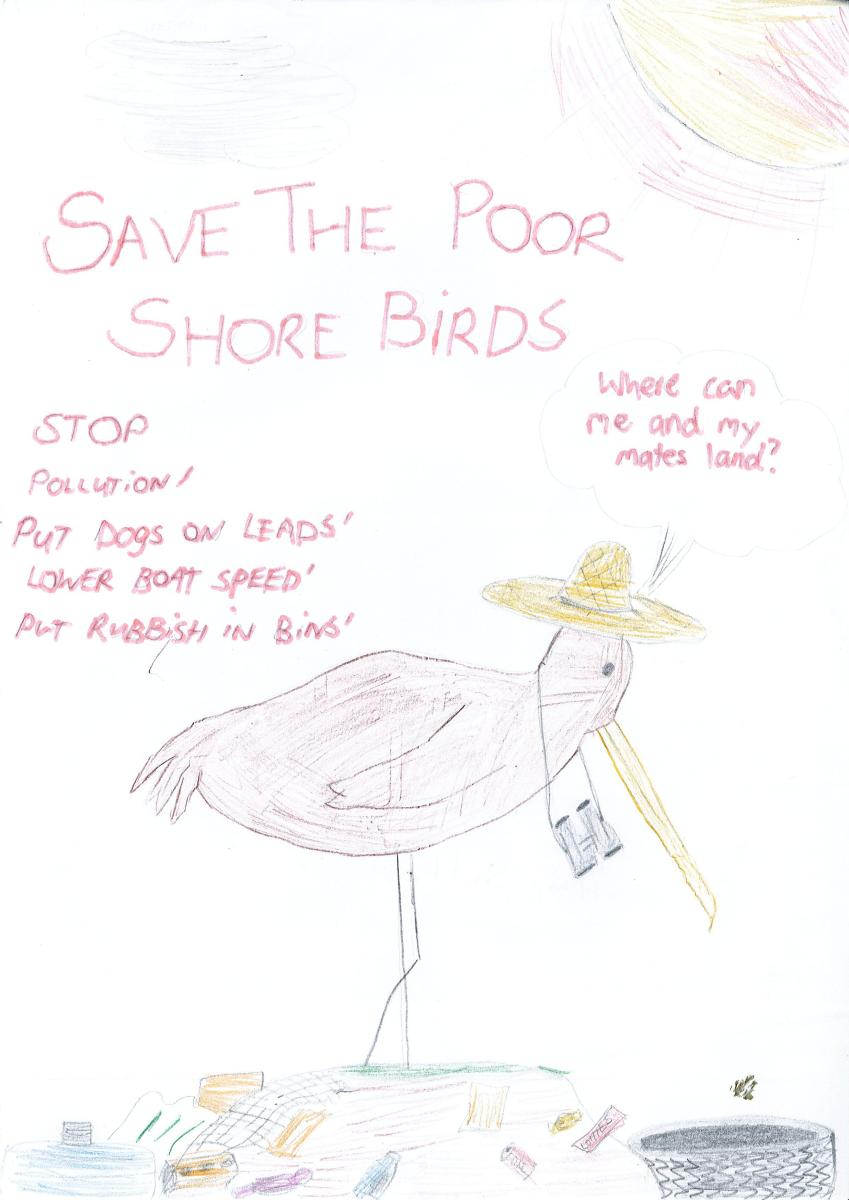 SAVE THE POOR
SHORE BiRDS
Where can
me and my
mates land?
STOP
POLLUTiON!
PUT DOgS ON LEADS!
LOWER BOAT SPEED!
PUT RUBBiSH iN BiNS!